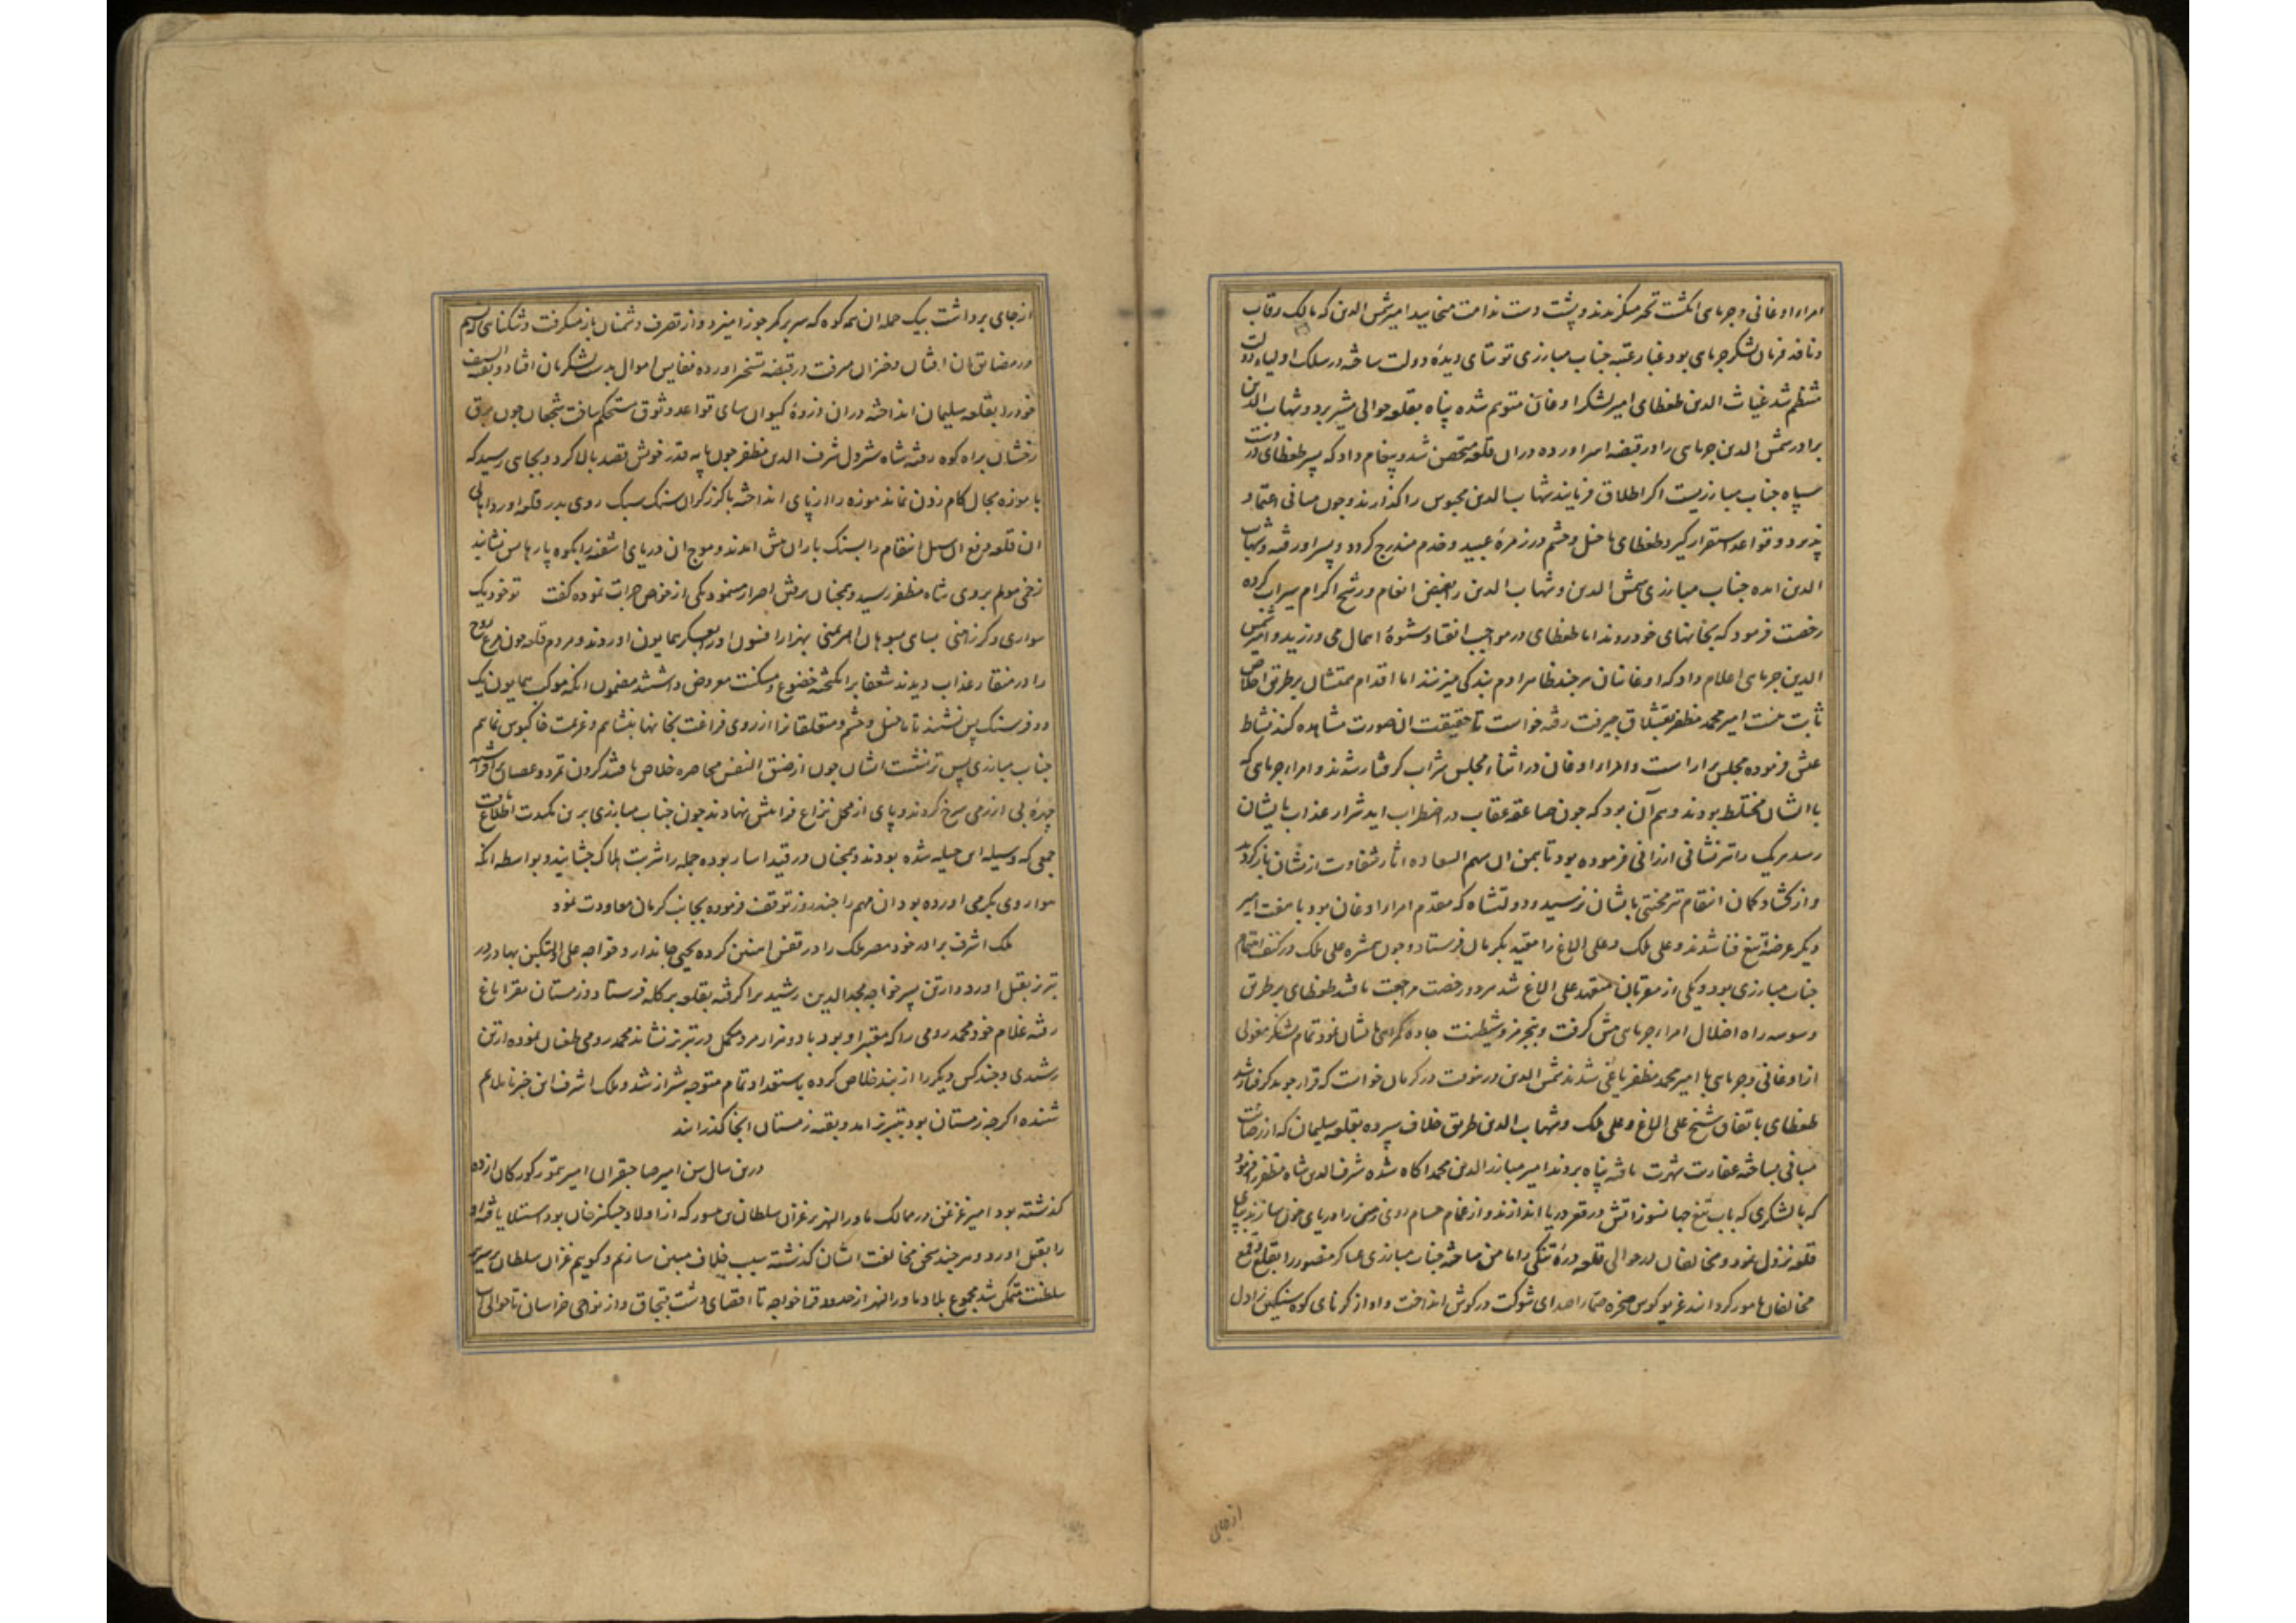 امراء اوغانی و جرمای انکشت تحیر میکزیدند و پشت دست ندامت میخایید امیر شمس الدین که مالک رقاب
و نافذ فرمان لشکر جرمای بود غبار عتبه جناب مبارزی توتیای دیدهٔ دولت ساخته در سلک اولیاء دولت
منتظم شد غیاث الدین طغطای امیر لشکر اوغان متوهم شده پناه بقلعه حوالی مشیز برد و شهاب الدین
برادر شمس الدین جرمای را در قبضه اسر اورده دران قلعه متحصن شد و پیغام داد که پسر طغطای در دست
سپاه جناب مبارزیست اکر اطلاق فرمایند شهاب الدین محبوس را کذارند و چون مبانی اعتماد
پذیرد و قواعد استقرار کیرد طغطای با خیل و حشم در زمرهٔ عبید و خدم مندرج کردد و پسر او رفته و شهاب
الدین امده جناب مبارزی شمس الدین و شهاب الدین را بفیض انعام و رشح اکرام سیراب کرده
رخصت فرمود که بخانهای خود روند اما طغطای در مواجب انقیاد شیوهٔ اهمال می ورزید و امیر شمس
الدین جرمای اعلام داد که اوغانیان هرچند ظاهرا دم بندکی میزنند اما اقدام تمشال بر طریق اخلاص
ثابت نیست امیر محمد مظفر بقشلاق جیرفت رفته خواست تا حقیقت ان صورت مشاهده کند نشاط
عیش فرموده مجلس بر اراست و امراء اوغان در اثناء مجلس شراب کرفتار شدند و امراء جرمای که
با ایشان مختلط بودند وهم آن بود که چون صاعقه عقاب در اضطراب اید شرار عذاب بایشان
رسد هریک را تیر نشانی ارزانی فرموده بود تا بیمن ان سهم السعاده اثار شقاوت از یشان باز کردید
و از کشاد کمان انتقام تیر محنتی بایشان نرسید و دولتشاه که مقدم امراء اوغان بود با هفت امیر
دیکر عرضه تیغ فنا شدند و علی ملک و علی الاغ را مقید بکرمان فرستاد و چون همشره علی ملک در کنف اهتمام
جناب مبارزی بود و یکی از مقربان متعهد علی الاغ شد هر دو رخصت مراجعت یافتند طغطای بر طریق
وسوسه راه اضلال امراء جرمای پیش کرفت و بنجر مز و شیطنت جاده کمراهی بایشان نمود تمام لشکر مغولی
از اوغانی و جرمای با امیر محمد مظفر یاغی شدند شمس الدین در نوبت در کرمان خواست که فرار جوید کرفتار شد
طغطای باتفاق شیخ علی الاغ و علی ملک و شهاب الدین طریق خلاف سپرده بقلعه سلیمان که از رصانت
مبانی بساخته عفاریت شهرت یافته پناه بردند امیر مبارز الدین محمد اکاه شده شرف الدین شاه مظفر را فرمود
که با لشکری که باب تیغ جهانسوز اتش در قعر دریا اندازند و از غمام حسام روی زمین را دریای خون سازند بپای
قلعه نزول نمود و مخالفان در حوالی قلعه درهٔ تنکی را مامن ساخته جناب مبارزی عساکر منصور را بقلع و قمع
مخالفان مامور کردانید غریو کوس صخره صما را صدای شوکت در کوش انداخت و اواز کرنای کوه سنکین را دل
از جای
از جای برداشت بیک حمله ان همه کوه که سر بر کمر جوزا میزد و از تصرف دشمنان باز میکرفت و تنکنای که نسیم
در مضایق ان افتان و خیزان میرفت در قبضه تسخیر اورده نفایس اموال بدست لشکریان افتاد و بقیة السیف
خود را بقلعه سلیمان انداخته دران ذروهٔ کیوان سای قواعد وثوق مستحکم یافت شجعان چون برق
رخشان براه کوه رفته شاه شیردل شرف الدین مظفر چون پایه قدر خویش قصد بالا کرد و بجایی رسید که
با موزه مجال کام زدن نماند موزه را از پای انداخته با کرز کران سنک سبک روی بدر قلعه اورد اهالی
ان قلعه دفع ان سیل انتقام را بسنک باران پیش امدند و موج ان دریای اشفته را بکوه پارها می نشانید
زخمی مولم بروی شاه مظفر رسید و همچنان بر پیش اصرار مینمود یکی از خواص جرات نموده کفت تو خود یک
سواری و کرز اهنی بسای سوهان اهرمنی بهزار افسون او را بمعسکر همایون اوردند و مردم قلعه چون مرغ روح
را در منقار عذاب دیدند شفعا برانکیخته خضوع و مسکنت معروض داشتند مضمون انکه موکب همایون یک
دو فرسنک پس نشیند تا ما خیل و حشم و متعلقانرا از روی فراغت بخانها بنشانیم و عزیمت خاکبوس نماییم
جناب مبارزی پس تر نشست ایشان چون از ضیق النفس محاصره خلاص یافتند کردن تمرد و عصیان افراشته
چهرهٔ بی ازرمی سرخ کردند و پای از محل نزاع فرا پیش نهادند چون جناب مبارزی برین مکیدت اطلاع یافت
جمعی که وسیله این حیله شده بودند و همچنان در قید اسار بوده جمله را شربت هلاک چشانید و بواسطه انکه
هوا روی بکرمی اورده بود ان مهم را چند روز توقف فرموده بجانب کرمان معاودت نمود
ملک اشرف برادر خود مصر ملک را در قفس اهنین کرده یحیی جاندار و خواجه علی و التکین بهادر در
تبریز بقتل اورد و ارتن پسر خواجه مجد الدین رشید را کرفته بقلعه برکله فرستاد و زمستان بقراباغ
رفته غلام خود محمد رومی را که معتبر او بود با دو هزار مرد مکمل در تبریز نشاند محمد رومی طغیان نموده ارتن
رشیدی و چند کس دیکر را از بند خلاص کرده باستعداد تمام متوجه شیراز شد و ملک اشرف این خبر ناملایم
شنیده اکرچه زمستان بود بتبریز امد و بقیه زمستان انجا کذرانید
درین سال سن امیر صاحبقران امیر تیمور کورکان از ده
کذشته بود امیر غزغن در ممالک ماوراالنهر بر غزان سلطان بن میسور که از اولاد جنکیز خان بود استیلا یافته او
را بقتل اورد و هرچند سخن مخالفت ایشان کذشته سبب خلاف مبین سازیم و کوییم غزان سلطان بر سریر
سلطنت متمکن شد مجموع بلاد ماوراالنهر از حدود قراخواجه تا اقصای دشت قبجاق و از نواحی خراسان تا حوالی